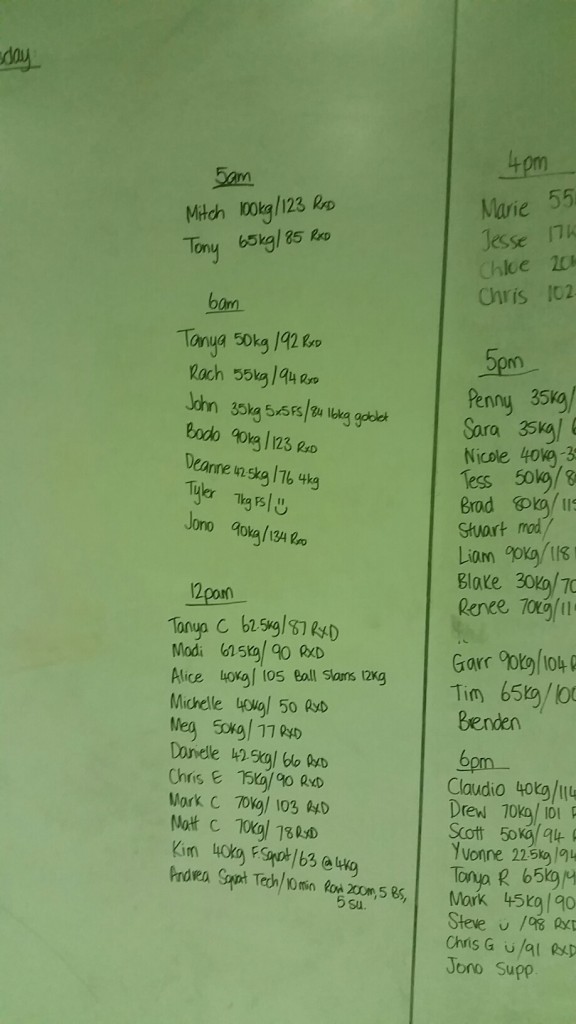 sday
5am
Mitch 100kg/123 RXD
Tony 65kg/85 RXD
6am
Tanya 50kg/92 RXD
Rach 55kg/94 RXD
John 35kg 5x5 FS/84 16kg goblet
Bodo 90kg/123 RXD
Deanne 42.5kg/76 4kg
Tyler 7kg FS/
Jono 90kg/134 RXD
12pm
Tanya C 62.5kg/87 RXD
Madi 62.5kg/90 RXD
Alice 40kg/105 Ball Slams 12kg
Michelle 40kg/50 RXD
Meg 50kg/77 RXD
Danielle 42.5kg/66 RXD
Chris E 75kg/90 RXD
Mark C 70kg/103 RXD
Matt C 70kg/78 RXD
Kim 40kg F.Squat/63 @ 4kg
Andrea Squat Tech/10min Row 200m, 5 BS,
5 SU.
4pm
Marie 55
Jesse 17
Chloe 20
Chris 102
5pm
Penny 35kg/
Sara 35kg/
Nicole 40kg-3
Tess 50kg/8
Brad 80kg/11
Stuart mod/
Liam 90kg/118
Blake 30kg/70
Renee 70kg/11
Garr 90kg/104 R
Tim 65kg/100
Brenden
6pm
Claudio 40kg/114
Drew 70kg/101
Scott 50kg/94
Yvonne 22.5kg/94
Tanya R 65kg/
Mark 45kg/90
Steve /98 RXD
Chris G /91 RXD
Jono Supp.